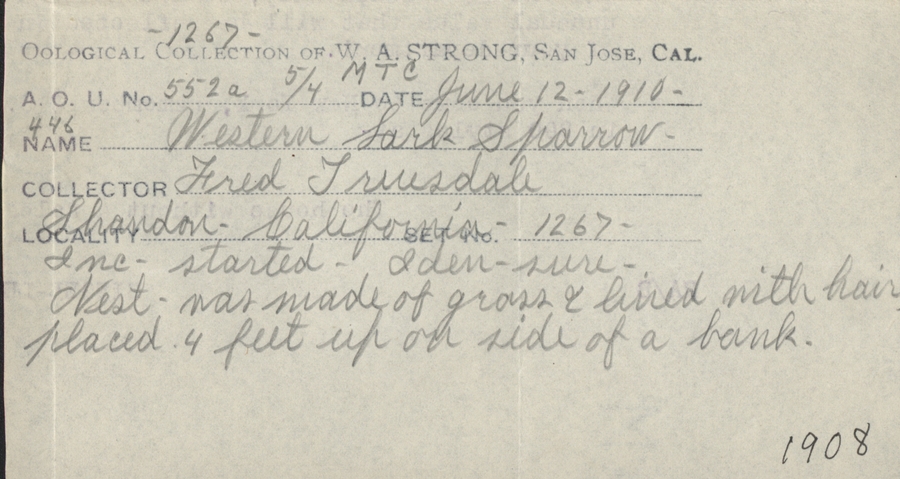 -1267-
OOLOGICAL COLLECTION OF W. A. STRONG, SAN JOSE, CAL.
A. O. U. NO. 552a 5/4 MTC DATE June 12 - 1910 -
446
NAME Western Lark Sparrow -
COLLECTOR Fred Truesdale
LOCALITY Shandon - California - SET NO. 1267 -
Inc - started - Iden - sure -
Nest - was made of grass & lined with hair
placed 4 feet up on side of a bank.
1908